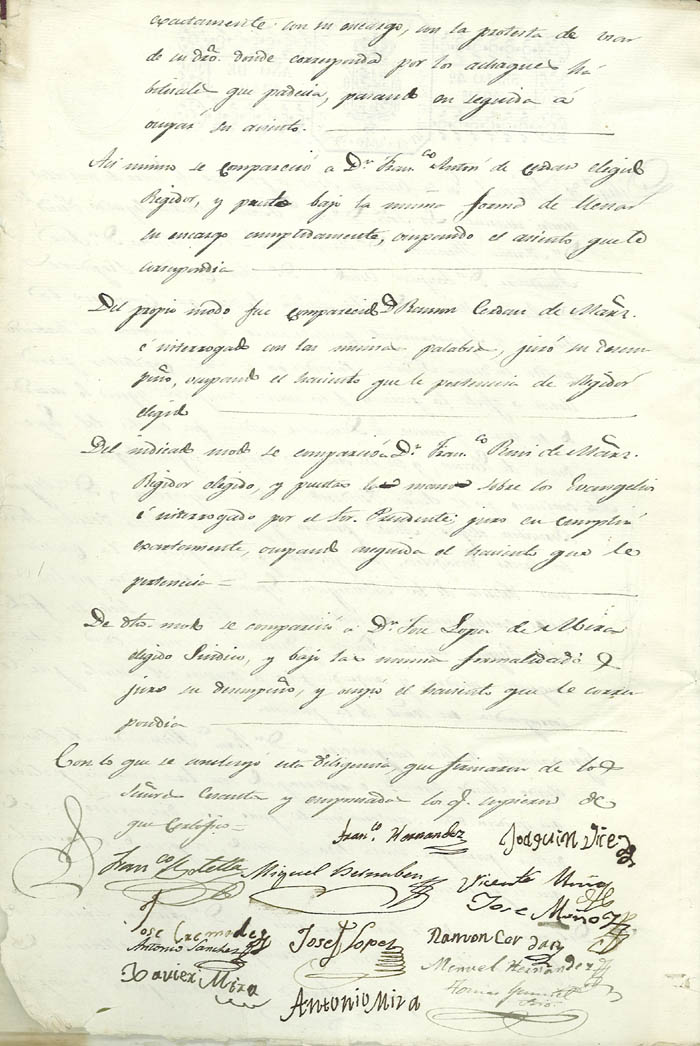 exactamente con su encargo, con la protesta de usar
de su dro. donde corresponda por los achaques há
bituales que padecia, pasando en seguida á
ocupar su asiento.
Asi mismo se compareció a Dn. Franco. Anton de Cerdan elegido
Regidor, y bajo la misma forma de llenar
su encargo cumplidamente, ocupando el asiento que le
correspondia
Del propio modo fue comparecido Dn. Ramon Cerdan de Mañz.
é interrogado con las mismas palabras, juró su desem
peño, ocupando el haciento que le pertenecia de Regidor
elegido
Del indicado modo se compareció a Dn. Franco. de Mañz.
Regidor elegido, y puestas las manos sobre los Evangelios
é interrogado por el Sor. Presidente juro su cumplir
exactamente, ocupando enseguida el haciento que le
pertenecia =
De dho. modo se compareció a Dn. Jose Lopez de Mira
elegido Sindico, y bajo las mismas formalidades
juro su desempeño, y ocupó el haciento que le corres
pondia
Con lo que se concluyó esta diligencia, que firmaron de los
Señores Entrantes y los q. supieron de
que Certifico =
Franco. Hernandez
Joaquin Vicedo
Franco. Botella
Miguel Bernabeu
Vicente Miño
Jose Muñoz
Jose Cremades
Antonio Sanchez
Josef Lopez
Ramon Cerdan
Manuel Hernandez
Xavier Mira
Tomas
Antonio Mira